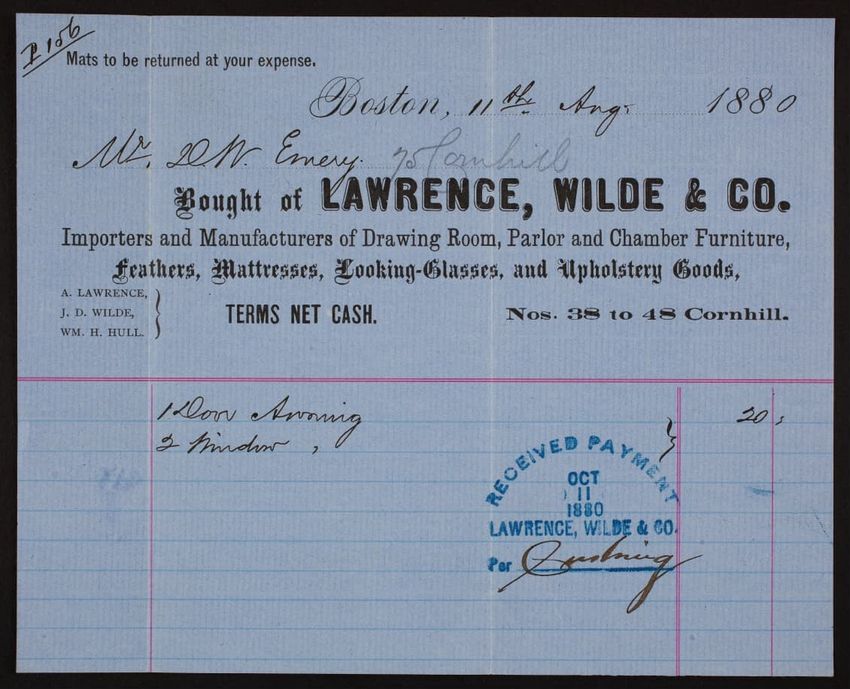 P 156
Mats to be returned at your expense.
Boston, 11th. Aug. 1880
Mr. D.W. Emery. 75 Cornhill
Bought of LAWRENCE, WILDE & CO.
Importers and Manufacturers of Drawing Room, Parlor and Chamber Furniture,
Feathers, Mattresses, Looking-Glasses, and Upholstery Goods,
A. LAWRENCE,
J. D. WILDE,
WM. H. HULL.
TERMS NET CASH.
Nos. 38 to 48 Cornhill.
1 Door Awning 20
2 Window "
RECEIVED PAYMENT
OCT
11
1880
LAWRENCE, WILDE & CO.
Per Cushing